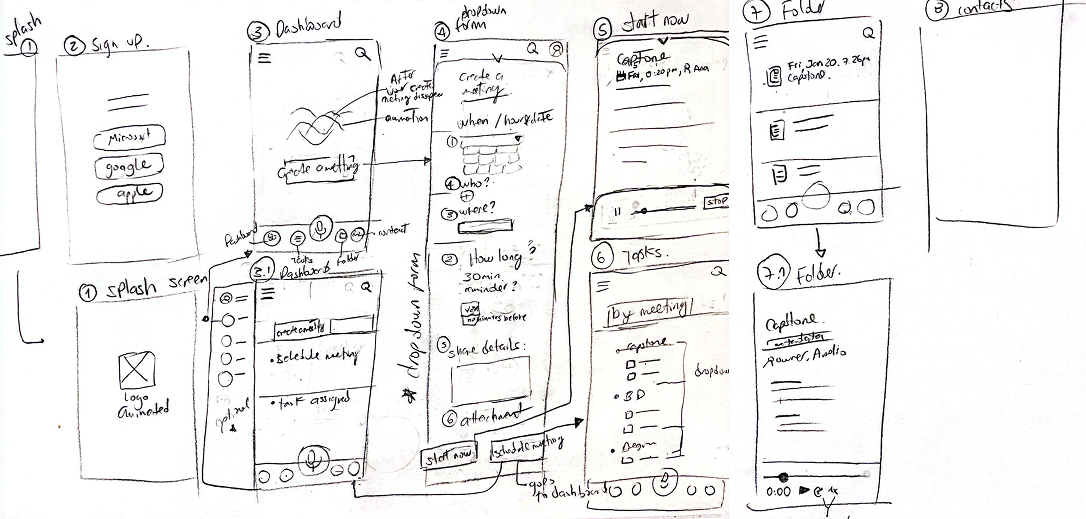 splash
1
2 Sign up.
Microsoft
google
apple
1 splash screen
Logo
Animated
3 Dashboard
After
meeting disappear
animation
Create a meeting
Dashboard
Tasks
folder
content
3.1 Dashboard
create meeting
• Schedule meeting
• task assigned
optional
* dropdown form
4 dropdown
form
Create a
meeting
when / hours/date
1
4 who?
3 where?
2 How long?
30min
reminder?
minutes before
5 share details:
6 attachment
start now
schedule meeting
goes
to dashboard
5 start now
Capstone
Fri, 0:20pm, R Ana
stop
6 Tasks.
by meeting
Capstone
• BD
• Degree
dropdown
7 Folder
Fri, Jan 20. 7.26pm
Capstone.
7.1 Folder.
Capstone
Rawner, Audio
0:00
1x
8 contacts